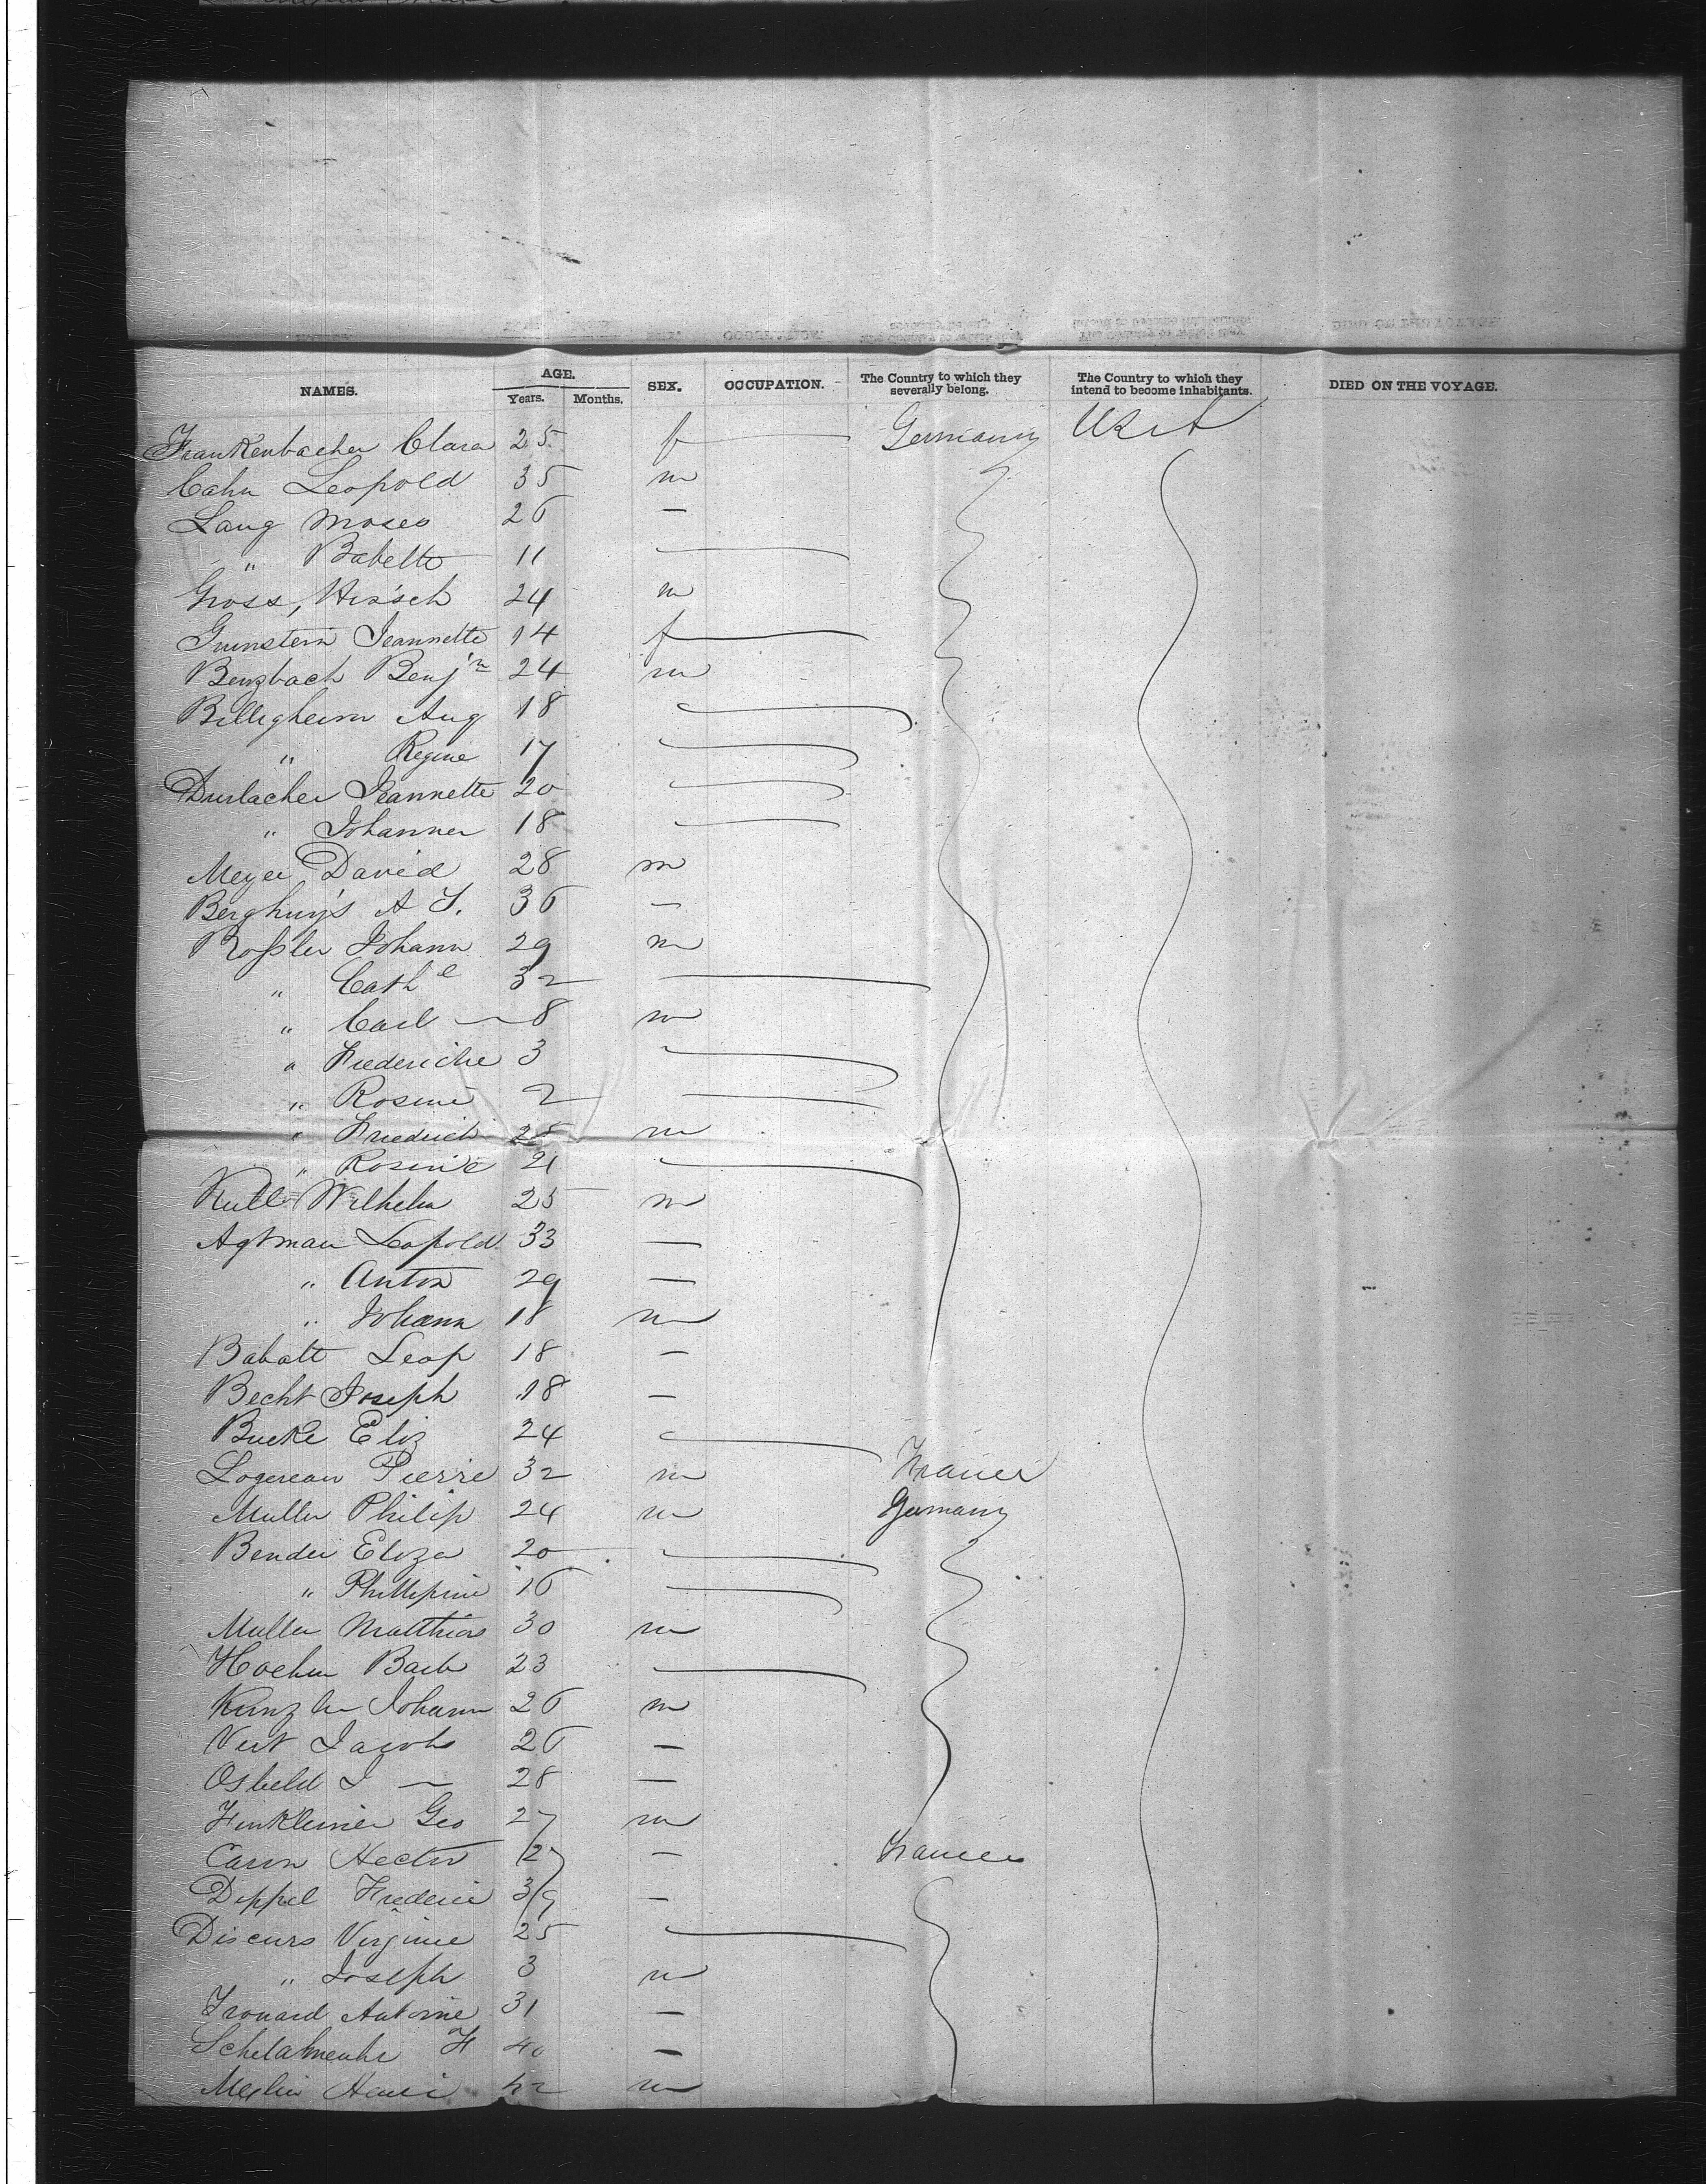 NAMES. AGE. SEX. OCCUPATION. The Country to which they severally belong. The Country to which they intend to become inhabitants. DIED ON THE VOYAGE.
Years. Months.
Frankenbacher Clara 25 f Germany USA
Cahn Leopold 35 m
Lang Moses 26 —
" Babette 11
Gross, Hirsch 24 m
Grunstein Jeannette 14 f
Benzbach Benjn 24 m
Billigheim Aug 18
" Regine 17
Durlacher Jeannette 20
" Johanner 18
Meyer David 28 m
Berghuys A 36 —
Rossler Johann 29 m
" Cathe 32
" Carl — 8 m
" Friederiche 3
" Rosine 2
" Friedrich 28 m
" Rosine 21
Kull Wilhelm 25 m
Agtman Leopold 33 —
" Anton 29 —
" Johann 18 m
Babatt Leop 18 —
Becht Joseph 18 —
Bucke Eliz 24
Logereau Pierre 32 m France
Muller Philip 24 m Germany
Bender Eliza 20
" Phillipine 16
Muller Matthias 30 m
Barb 23
Kunzler Johann 26 m
Veit Jacob 26 —
J — 28 —
Geo 27 m
Caron Hector 27 — France
Deppel Frederic 39 —
Discurs Virginie 25
" Joseph 3 m
Antoine 31 —
H 40 —
Henri 42 m